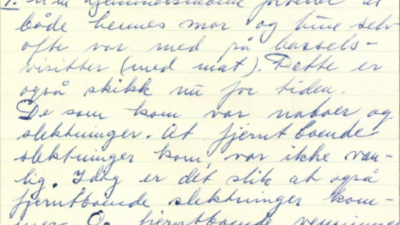 både hennes mor og hun selv
ofte var med på barsels-
visitter (med mat). Dette er
også skikk nu for tiden.
De som kom var naboer og
slektninger. At fjernt boende
slektninger kom, var ikke van-
lig. Idag er det slik at også
fjerntboende slektninger kom-
mer. Og fjerntboende venninner